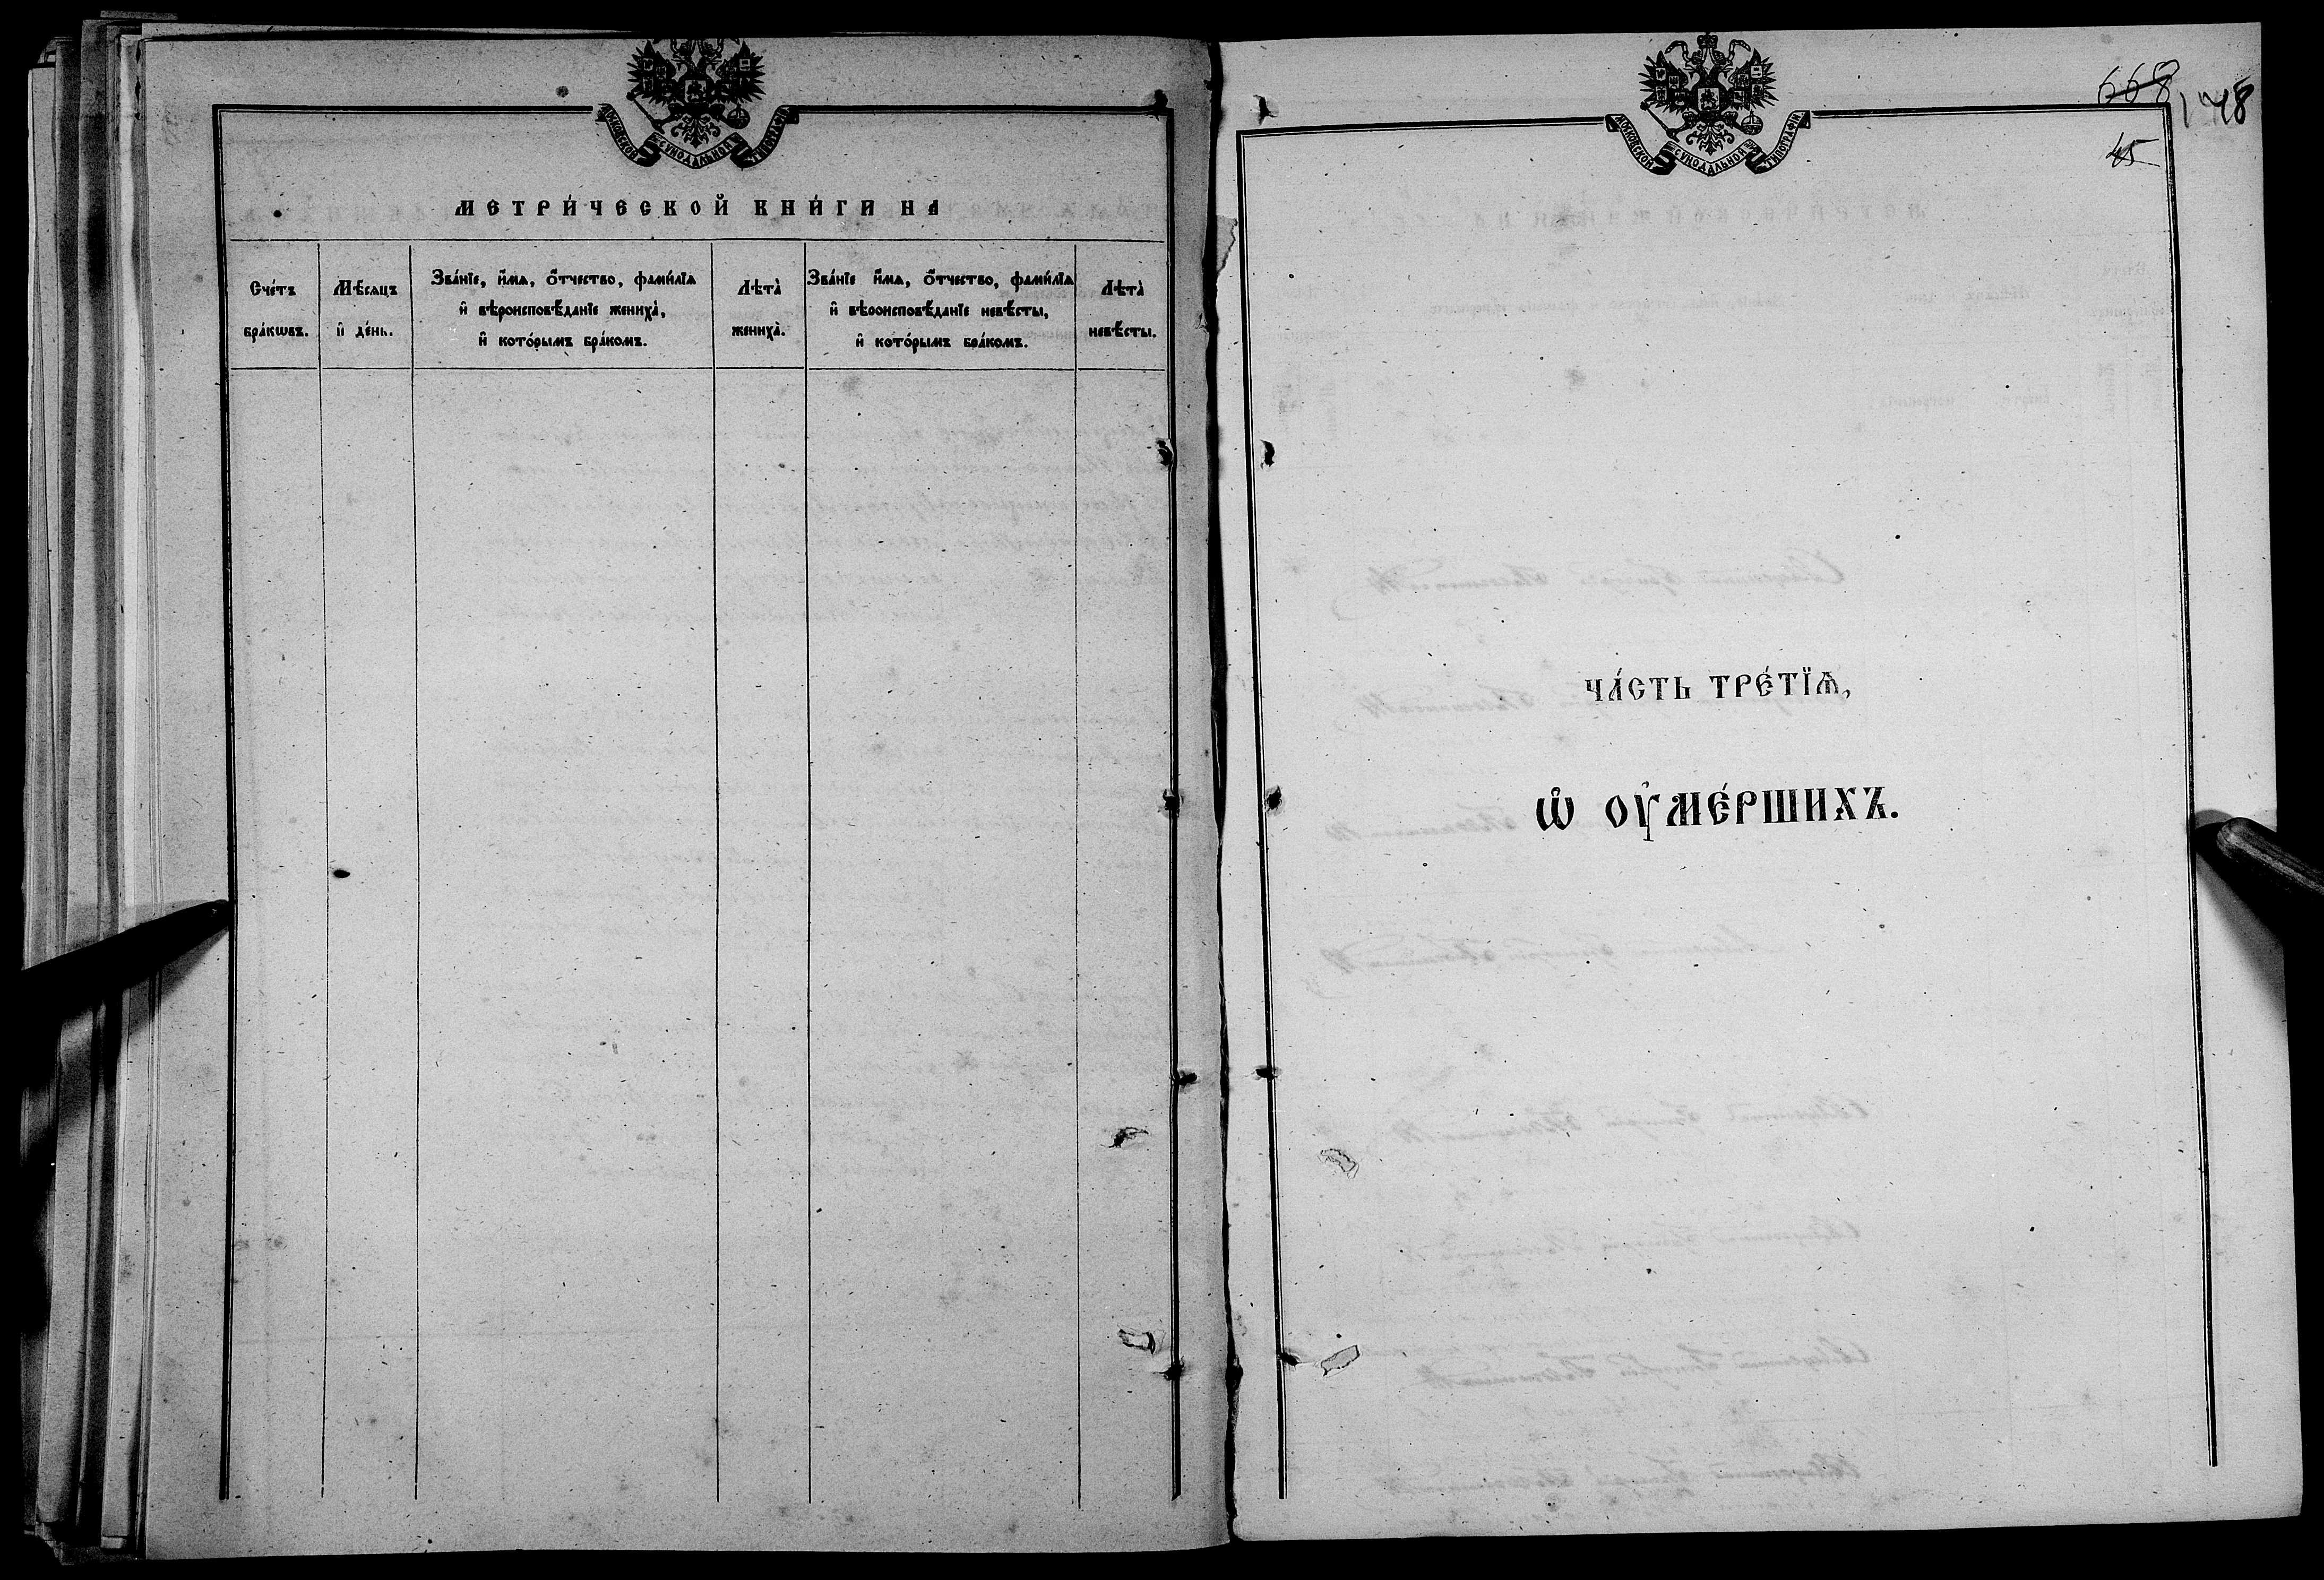 МОСКОВСКОЙ СѴНОДАЛЬНОЙ ТИПОГРАФІИ
МЕТРИ́ЧЕСКОЙ КНИ́ГИ НА
Сче́тъ
бра́кѡвъ.
Мѣ́сяцъ
и҆ де́нь.
Зва́нїе, и҆́мѧ, ѻ҆́тчество, фами́лїѧ
и҆ вѣроисповѣ́данїе жениха̀,
и҆ кото́рымъ бра́комъ.
Лѣта̀
жениха̀.
Зва́нїе и҆́мѧ, ѻ҆́тчество, фами́лїѧ
и҆ вѣроисповѣ́данїе невѣ́сты,
и҆ кото́рымъ бра́комъ.
Лѣта̀
невѣ́сты.
МОСКОВСКОЙ СѴНОДАЛЬНОЙ ТИПОГРАФІИ
668
148
45
ЧА́СТЬ ТРЕ́ТЇѦ,
Ѡ҆ ОУ҆МЕ́РШИХЪ.